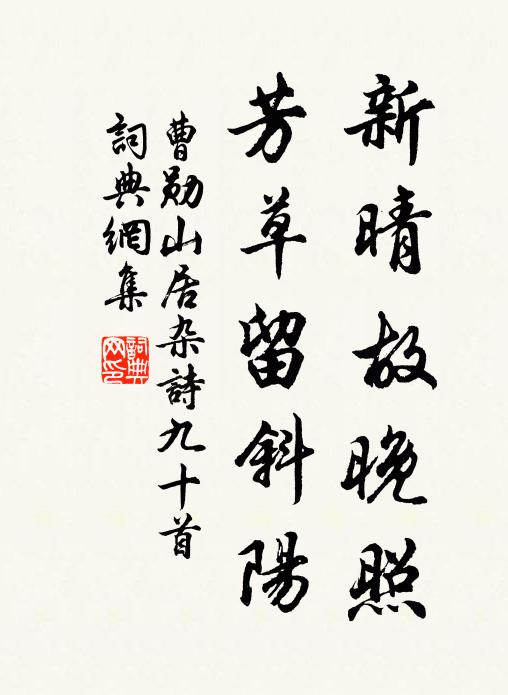 新晴故晚照
芳草留斜陽
曹勛山居杂詩九十首
詞典網集
詞典網印